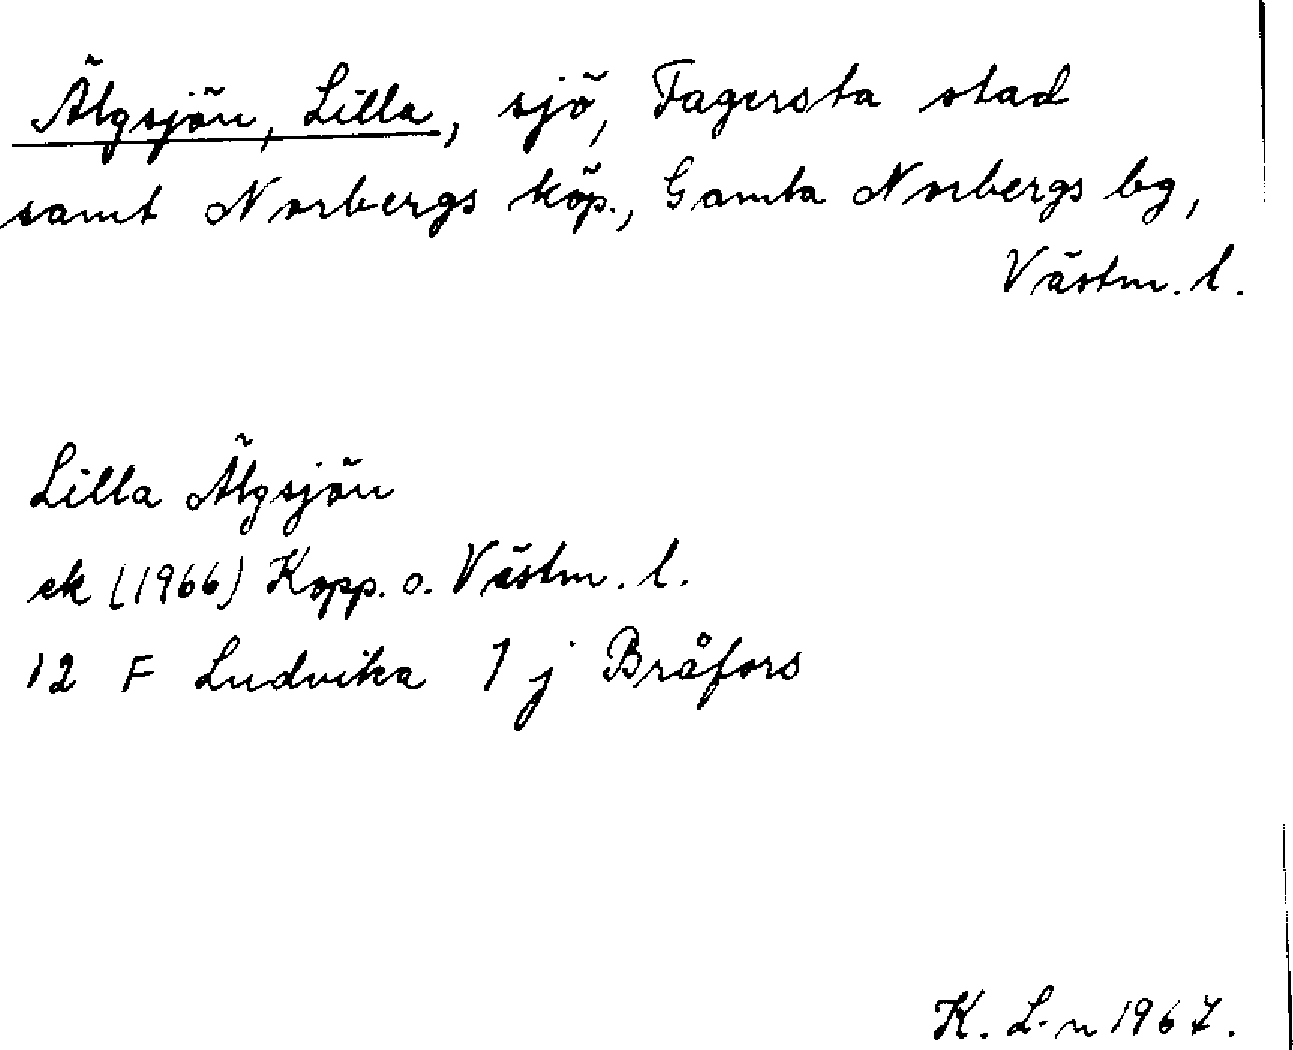 Älgsjön, Lilla, sjö, Fagersta stad
samt Norbergs köp., Gamla Norbergs bg,
Västm. l.
Lilla Älgsjön
ek (1966) Kopp. o. Västm. l.
12 F Ludvika 1 j Bråfors
K. L-n 1967.